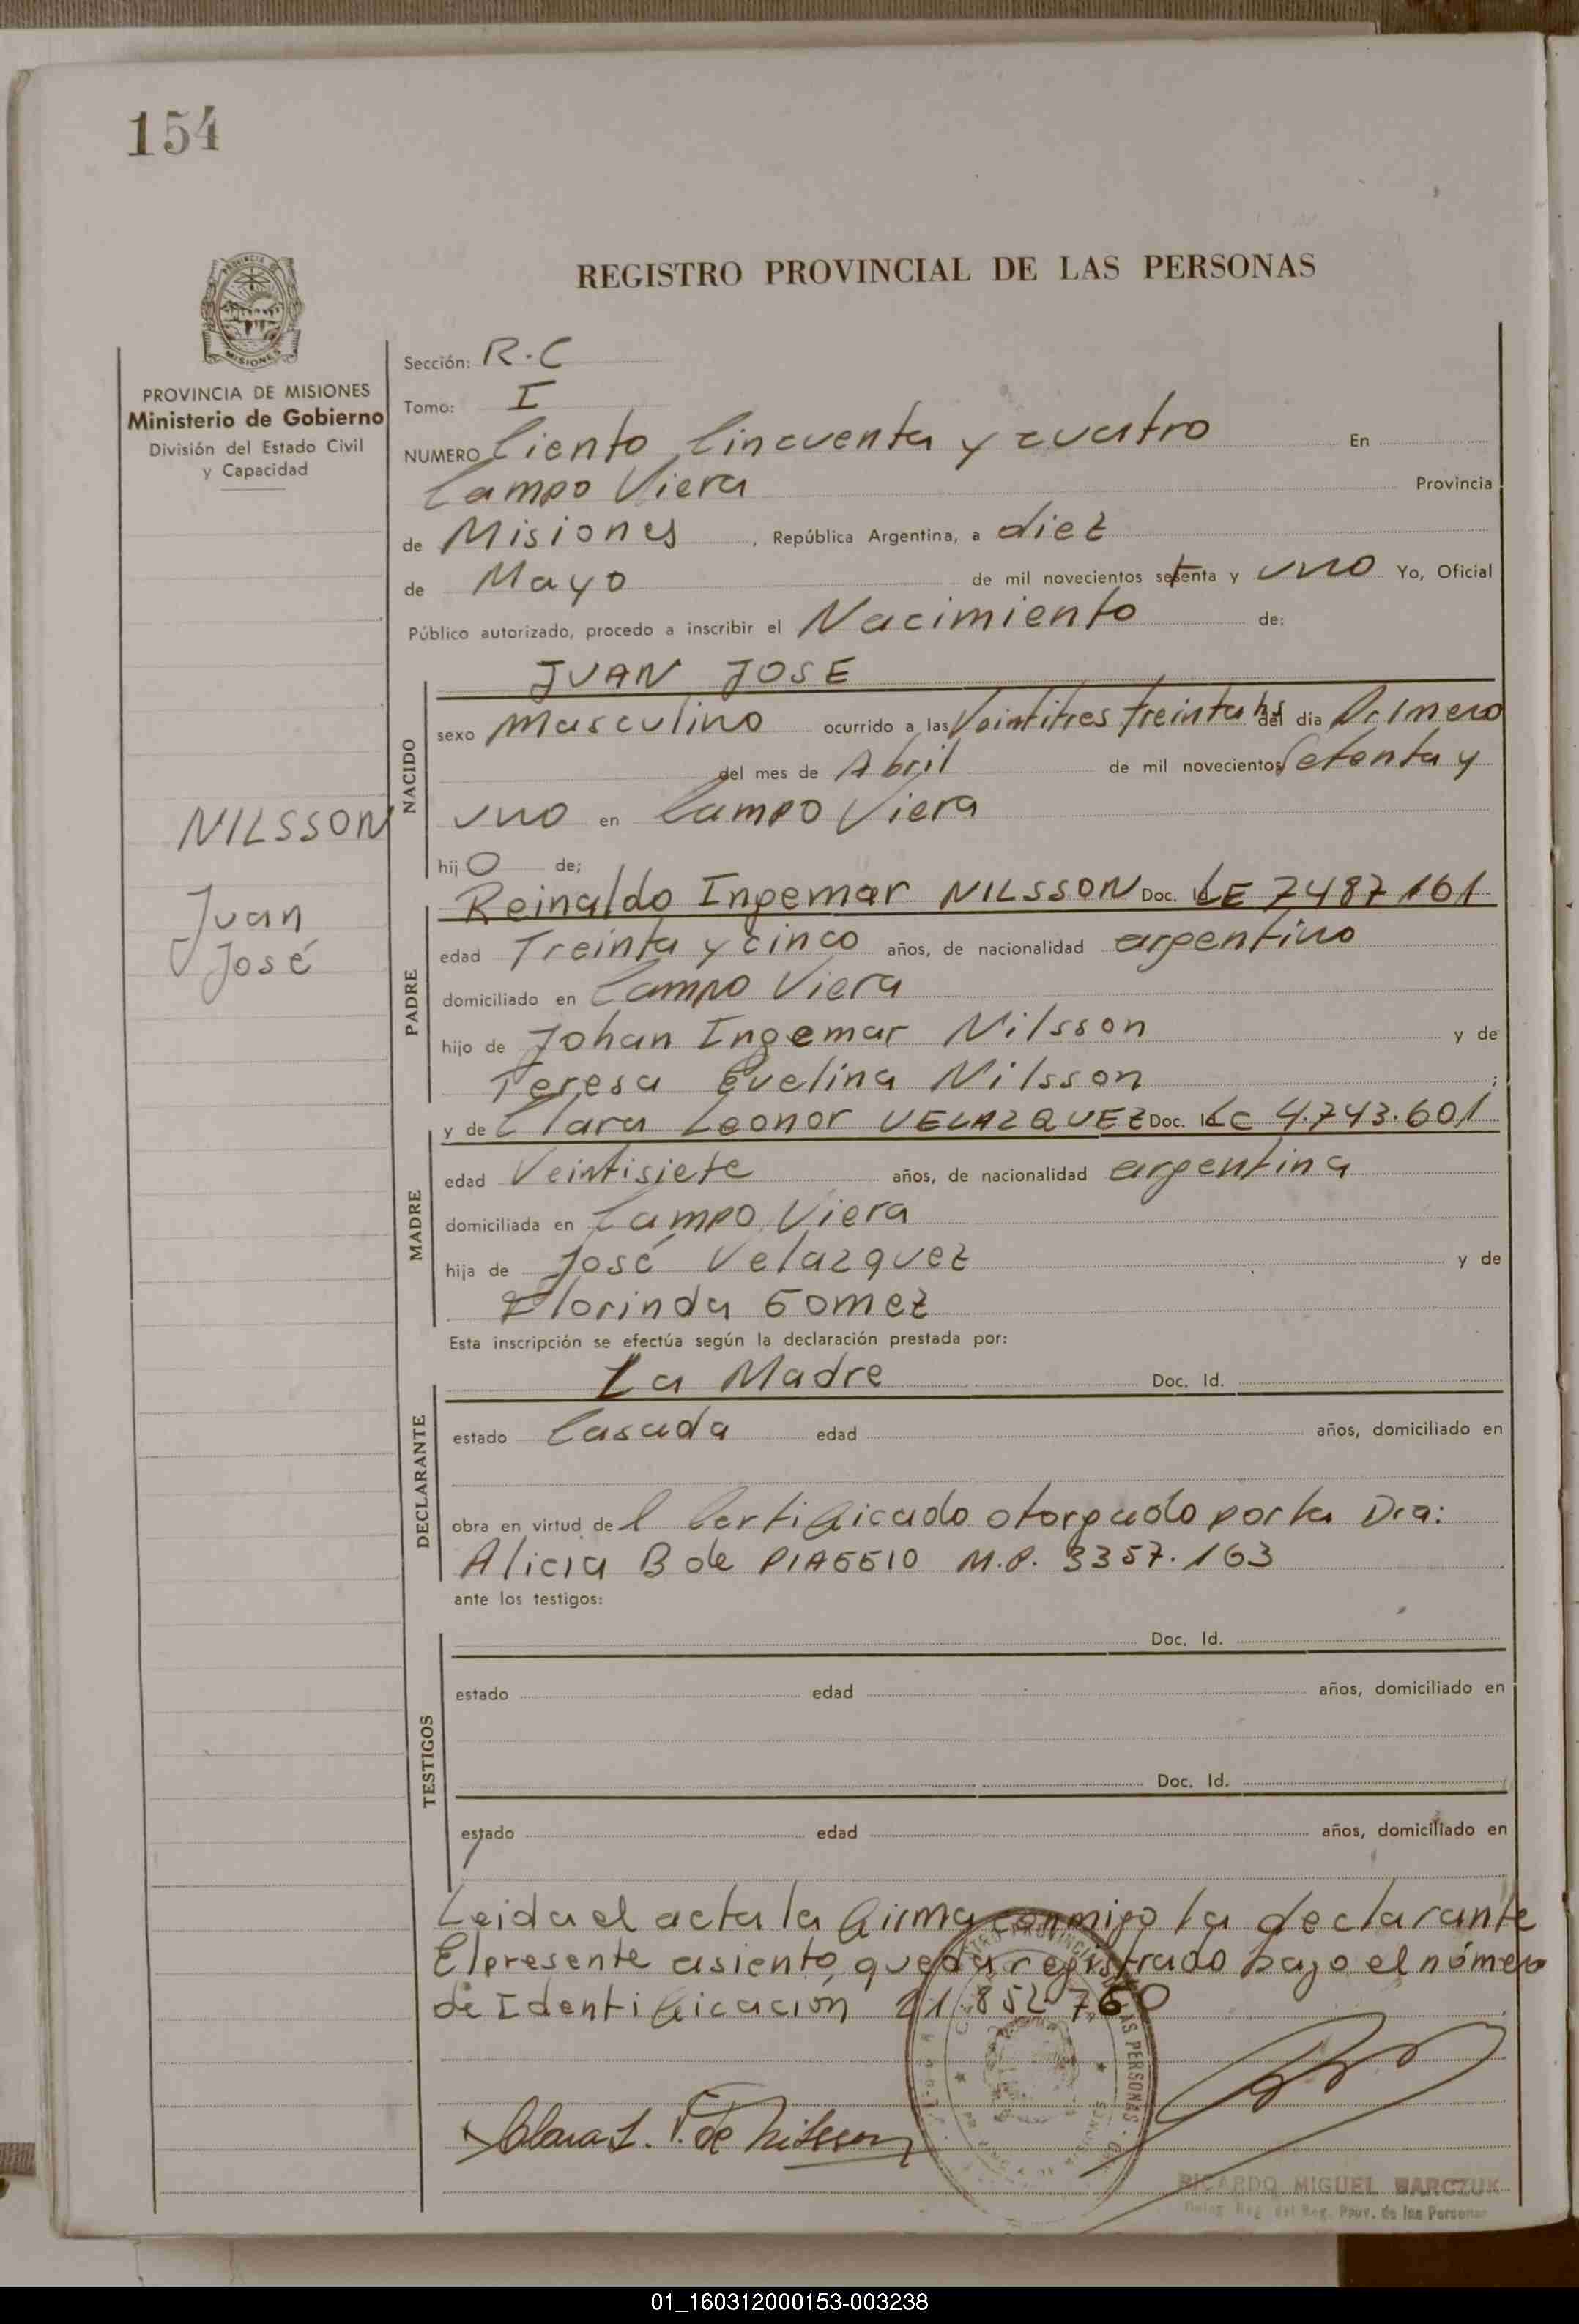 154
REGISTRO PROVINCIAL DE LAS PERSONAS
PROVINCIA
MISIONES
PROVINCIA DE MISIONES
Ministerio de Gobierno
División del Estado Civil
y Capacidad
Sección: R.C
Tomo: I
NUMERO Ciento Cincuenta y cuatro En
Campo Viera Provincia
de Misiones, República Argentina, a diez
de Mayo de mil novecientos setenta y uno Yo, Oficial
Público autorizado, procedo a inscribir el Nacimiento de:
JUAN JOSE
NACIDO
sexo Masculino ocurrido a las Veintitres treinta hs del día Primero
del mes de Abril de mil novecientos Setenta y
uno en Campo Viera
hijo de;
NILSSON
Juan
José
Reinaldo Ingemar NILSSON Doc. Id LE 7487161
PADRE
edad Treinta y cinco años, de nacionalidad argentino
domiciliado en Campo Viera
hijo de Johan Ingemar Nilsson y de
Teresa Evelina Nilsson;
y de Clara Leonor VELAZQUEZ Doc. Id LC 4.743.601
MADRE
edad Veintisiete años, de nacionalidad argentina
domiciliada en Campo Viera
hija de José Velazquez y de
Florinda Gomez
Esta inscripción se efectúa según la declaración prestada por:
La Madre Doc. Id.
DECLARANTE
estado Casada edad años, domiciliado en
obra en virtud del Certificado otorgado por la Dra:
Alicia B de PIAGGIO M.P. 3357.163
ante los testigos:
Doc. Id.
TESTIGOS
estado edad años, domiciliado en
Doc. Id.
estado edad años, domiciliado en
Leida el acta la firma conmigo la declarante
El presente asiento queda registrado bajo el número
de Identificación 21 852 760
Clara L. V. de Nilsson
RICARDO MIGUEL BARCZUK
Deleg. Reg. del Reg. Prov. de las Personas
01_160312000153-003238